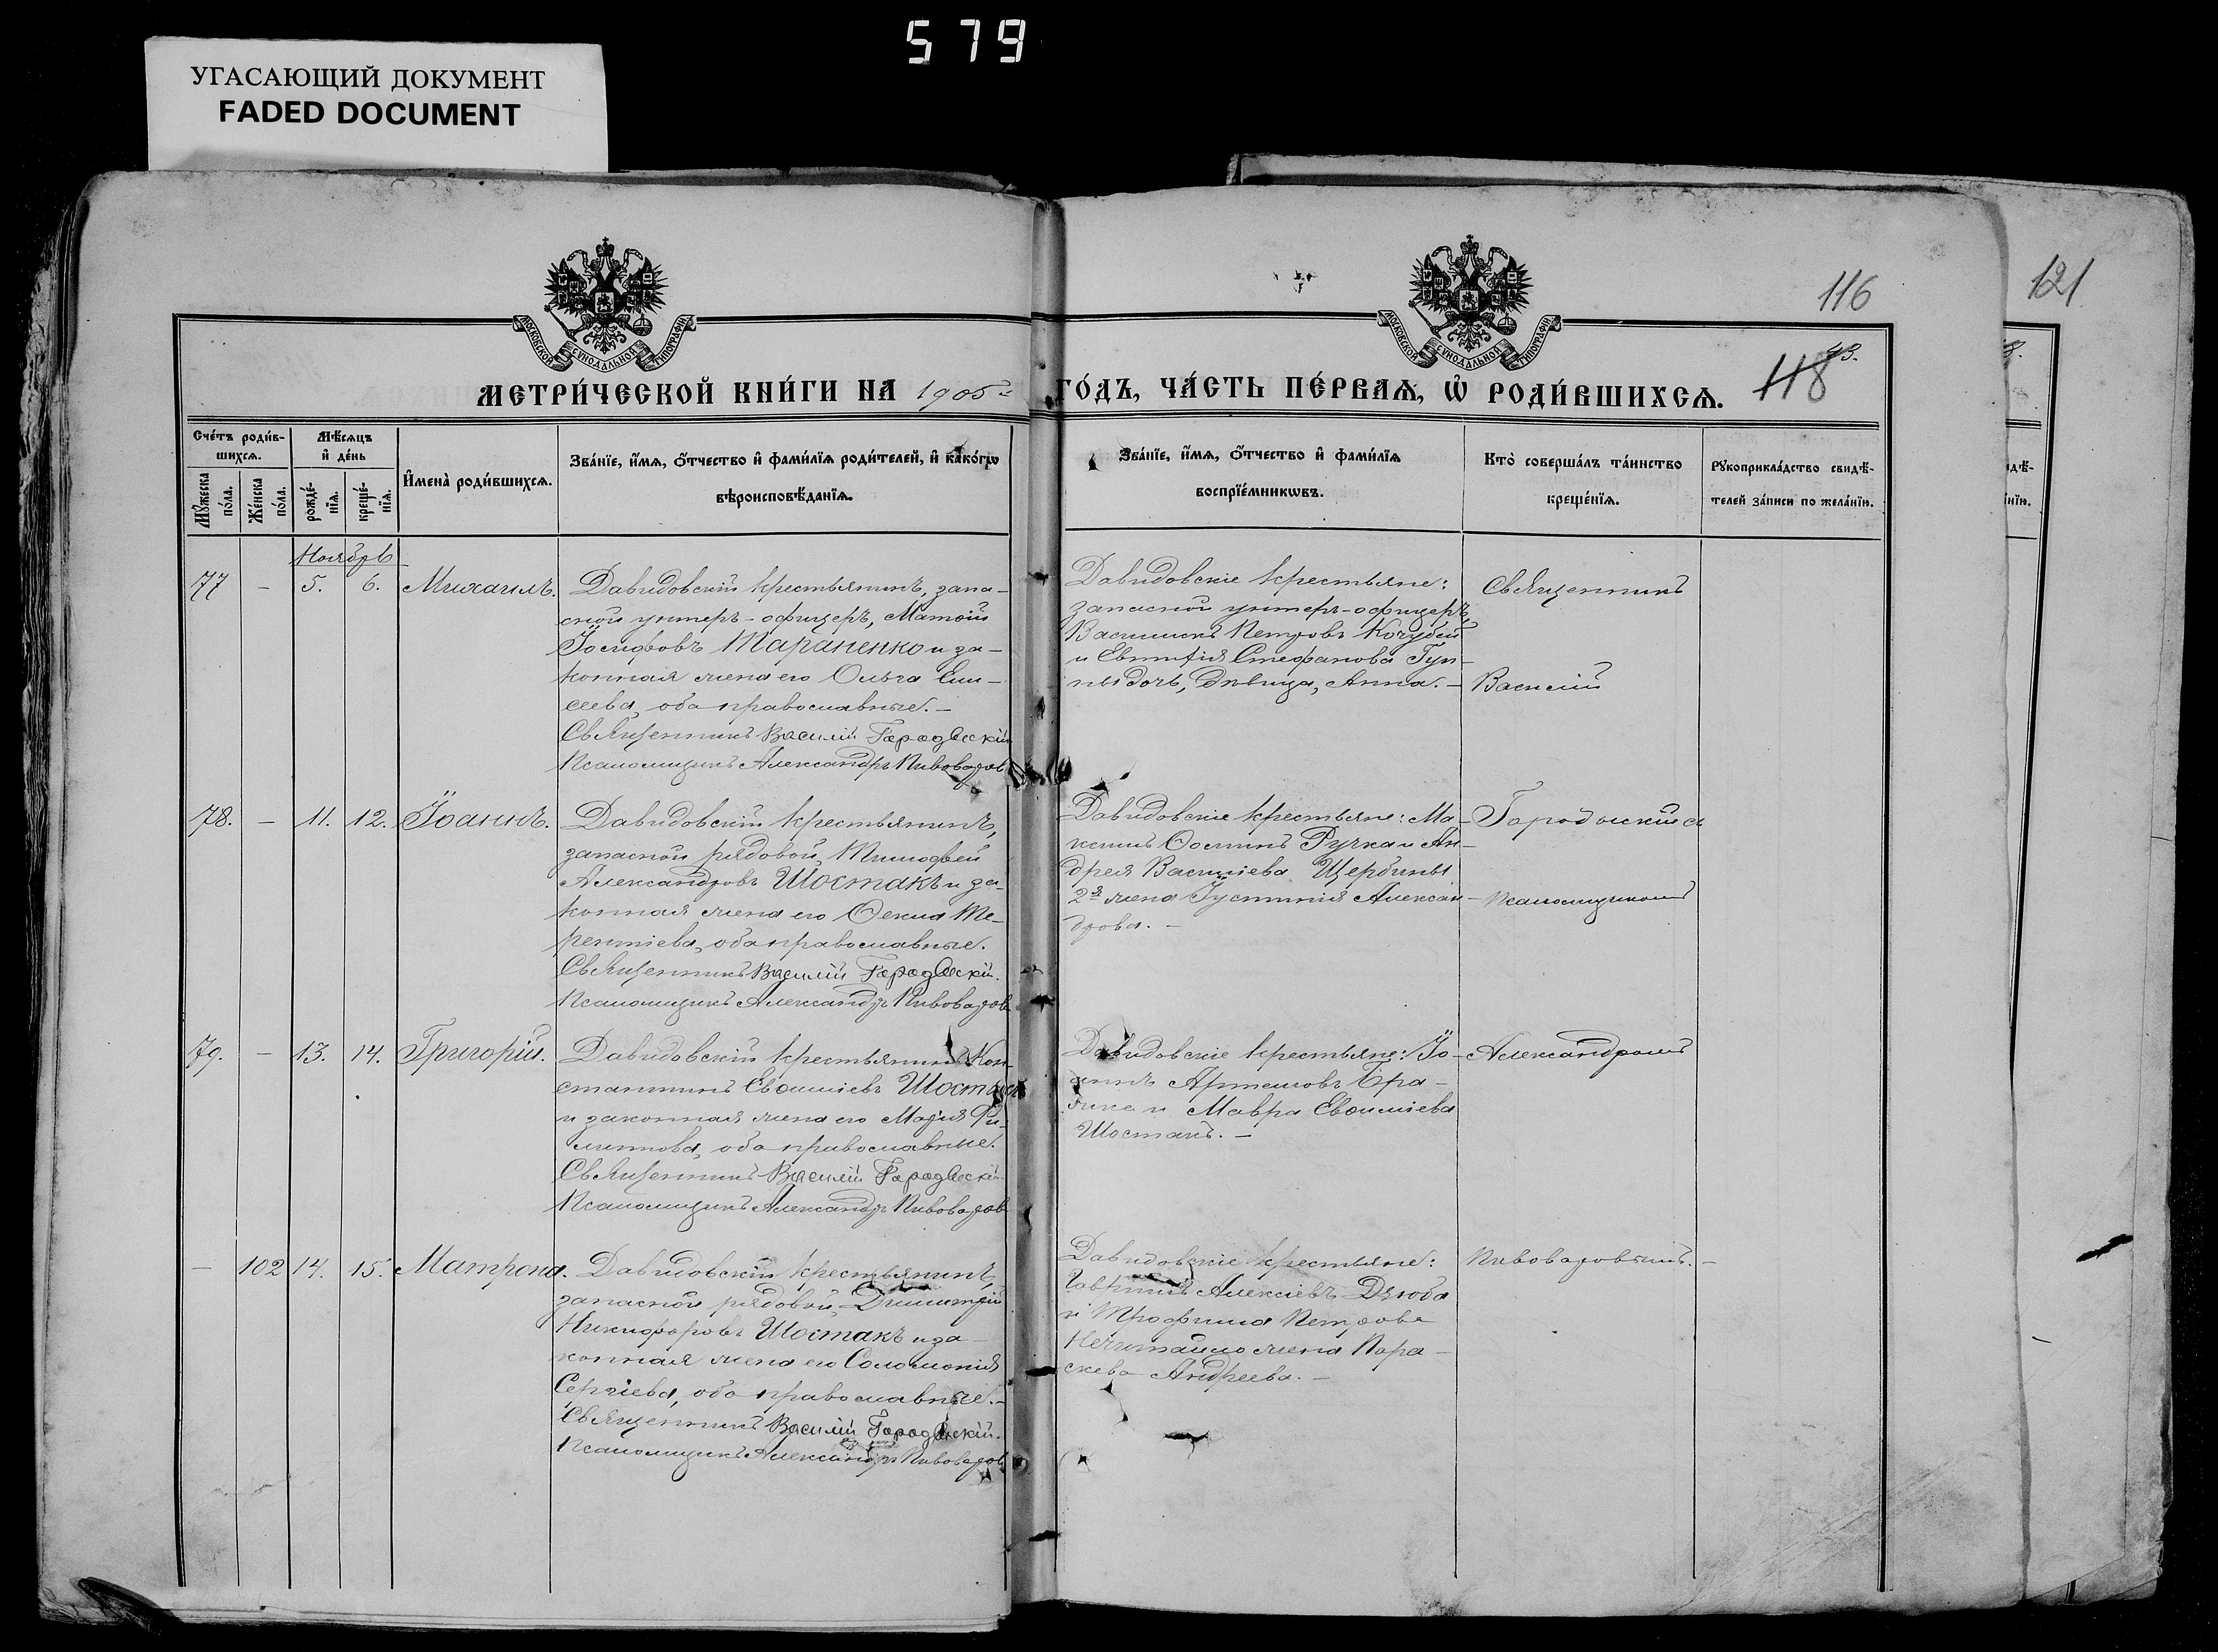 579
УГАСАЮЩИЙ ДОКУМЕНТ
FADED DOCUMENT
121
116
МОСКОВСКОЙ СѴНОДАЛЬНОЙ ТИПОГРАФІИ
МОСКОВСКОЙ СѴНОДАЛЬНОЙ ТИПОГРАФІИ
118
МЕТРИ́ЧЕСКОЙ КНИ́ГИ НА 1905 ГО́ДЪ, ЧА́СТЬ ПЕ́РВАѦ, Ѡ҆ РОДИ́ВШИХСѦ.
Сче́тъ роди́в-
шихсѧ.
Мꙋ́жеска по́ла.
Же́нска по́ла.
Мѣ́сѧцъ и҆ де́нь
рожде́-
нїѧ.
креще́-
нїѧ.
И҆мена̀ роди́вшихсѧ.
Зва́нїе, и҆́мѧ, ѻ҆́тчество и҆ фами́лїѧ роди́телей, и҆ како́гѡ
вѣроисповѣ́данїѧ.
Зва́нїе, и҆́мѧ, ѻ҆́тчество и҆ фами́лїѧ
воспрїе́мникѡвъ.
Кто̀ соверша́лъ та́инство
креще́нїѧ.
Рꙋкоприкла́дство свидѣ́-
телей за́писи по жела́нїю.
Ноябрь
77 - 5. 6. Михаилъ.
Давидовскій крестьянинъ, запа-
сной унтеръ-офицеръ, Матѳій
Іосифовъ Тараненко и за-
конная жена его Ольга Ели-
сеева, оба православные. -
Священникъ Василій Городскій
Псаломщикъ Александръ Пивоваровъ
Давидовскіе крестьяне:
запасной унтеръ-офицеръ,
Василискъ Петровъ Кочубей
и Евтихія Стефанова Гуп-
ны дочь, дѣвица, Анна. -
Священникъ
Василій
78. - 11. 12. Іоаннъ.
Давидовскій крестьянинъ,
запасной рядовой, Тимофей
Александровъ Шостакъ и за-
конная жена его Ѳекла Те-
рентіева, оба православные.
Священникъ Василій Городскій.
Псаломщикъ Александръ Пивоваровъ
Давидовскіе крестьяне: Ма-
ксимъ Ѳоминъ Ручка и Ан-
дрея Василіева Щербины
2я жена Іустинія Алексан-
дрова. -
Псаломщикомъ
79. - 13. 14. Григорій.
Давидовскій крестьянинъ Кон-
стантинъ Евѳиміевъ Шостакъ
и законная жена его Марія Фи-
липпова, оба православные.
Священникъ Василій Городскій
Псаломщикъ Александръ Пивоваровъ
Давидовскіе крестьяне: Іо-
аннъ Артемовъ
и Мавра Евѳиміева
Шостакъ. -
Александромъ
- 102 14. 15. Матрона.
Давидовскій крестьянинъ,
запасной рядовой, Димитрій
Никифоровъ Шостакъ и за-
конная жена его Соломонія
Сергіева, оба православные. -
Священникъ Василій Городскій.
Псаломщикъ Александръ Пивоваровъ
Давидовскіе крестьяне:
Алексіевъ Дзюба
и Трофима Петрова
Нечитайло жена Пара-
скева Андреева. -
Пивоваровымъ. -